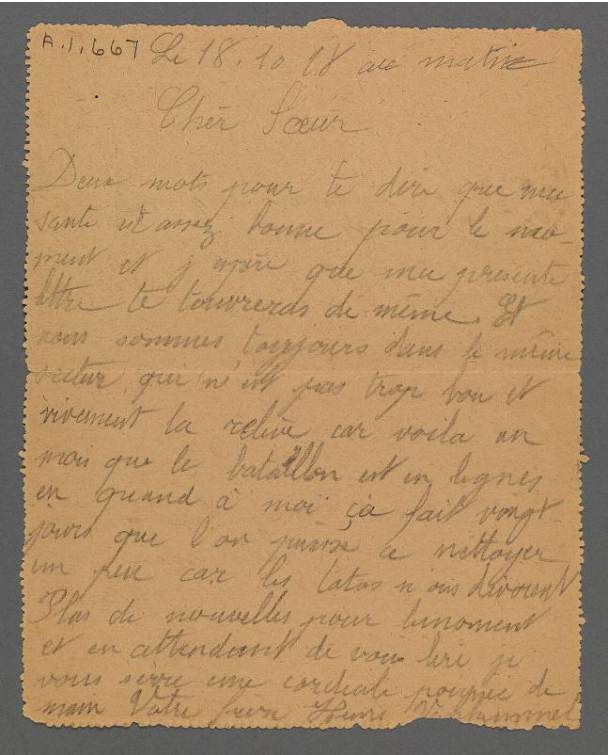 A.1.667 Le 18.10 18 au matin
Chèr Sœur
Deux mots pour te dire que ma
santé est assez bonne pour le mo-
ment et j'espère que ma présente
lettre te touvreras de même. Et
nous sommes toujours dans le même
secteur qui n'est pas trop bon et
vivement la relève car voila un
mois que le bataillon est en lignes
en quand à moi ça fait vingt
jours que l'on puisse ce nettoyer
un peu car les totos nous dévorent
Plas de nouvelles pour lemoment
et en attendant de vous lire je
vous serre une cordiale poignée de
main Votre frère Henri